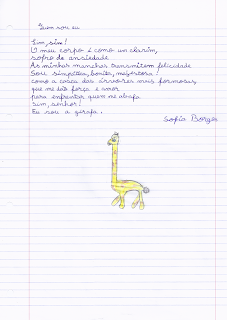 Quem sou eu
Sim, sim!
O meu corpo é como um clarim,
sofro de ansiedade
As minhas manchas transmitem felicidade
Sou simpática, bonita,
como a casca das árvores mais formosas,
que me dão força e amor
para enfrentar quem me abafa
Sim, senhor!
Eu sou a girafa.
Sofia Borges